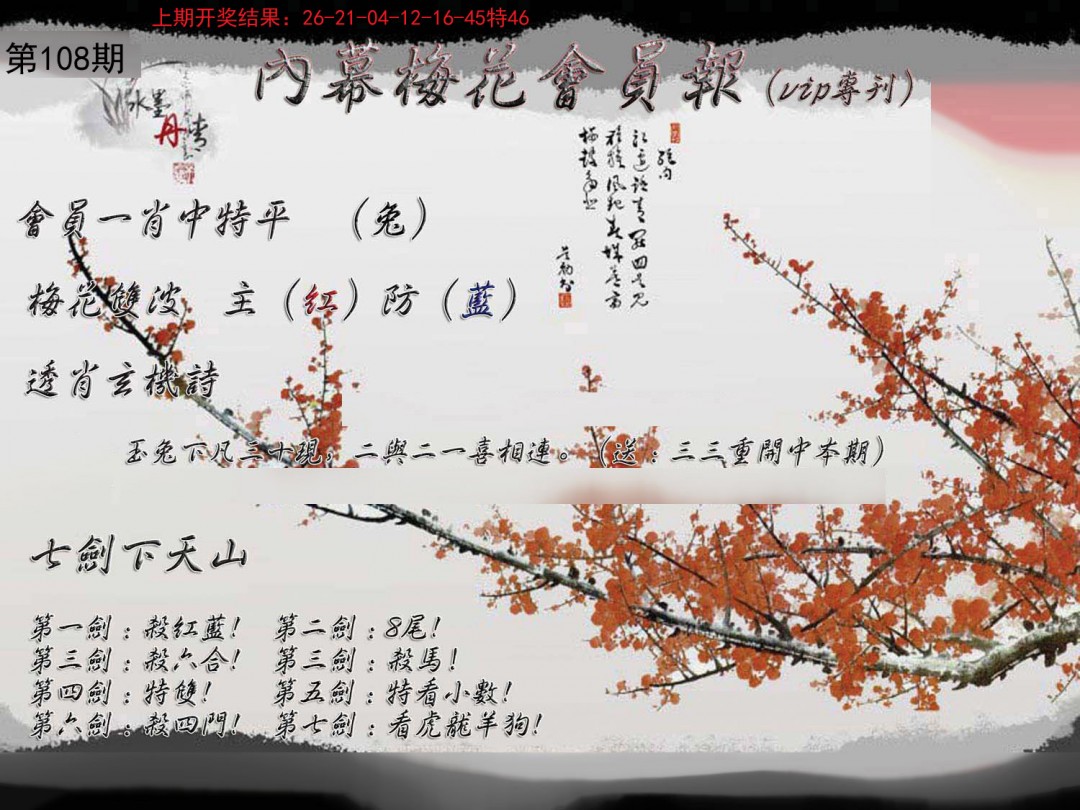 上期开奖结果：26-21-04-12-16-45特46
第108期
內幕梅花會員報（vip專刊）
水墨
丹青
會員一肖中特平 （兔）
梅花雙波 主（紅）防（藍）
透肖玄機詩
玉兔下凡三十現，二與二一喜相連。（送：三三重開中本期）
七劍下天山
第一劍：殺紅藍！ 第二劍：8尾！
第三劍：殺六合！ 第三劍：殺馬！
第四劍：特雙！ 第五劍：特看小數！
第六劍：殺四門！ 第七劍：看虎龍羊狗！